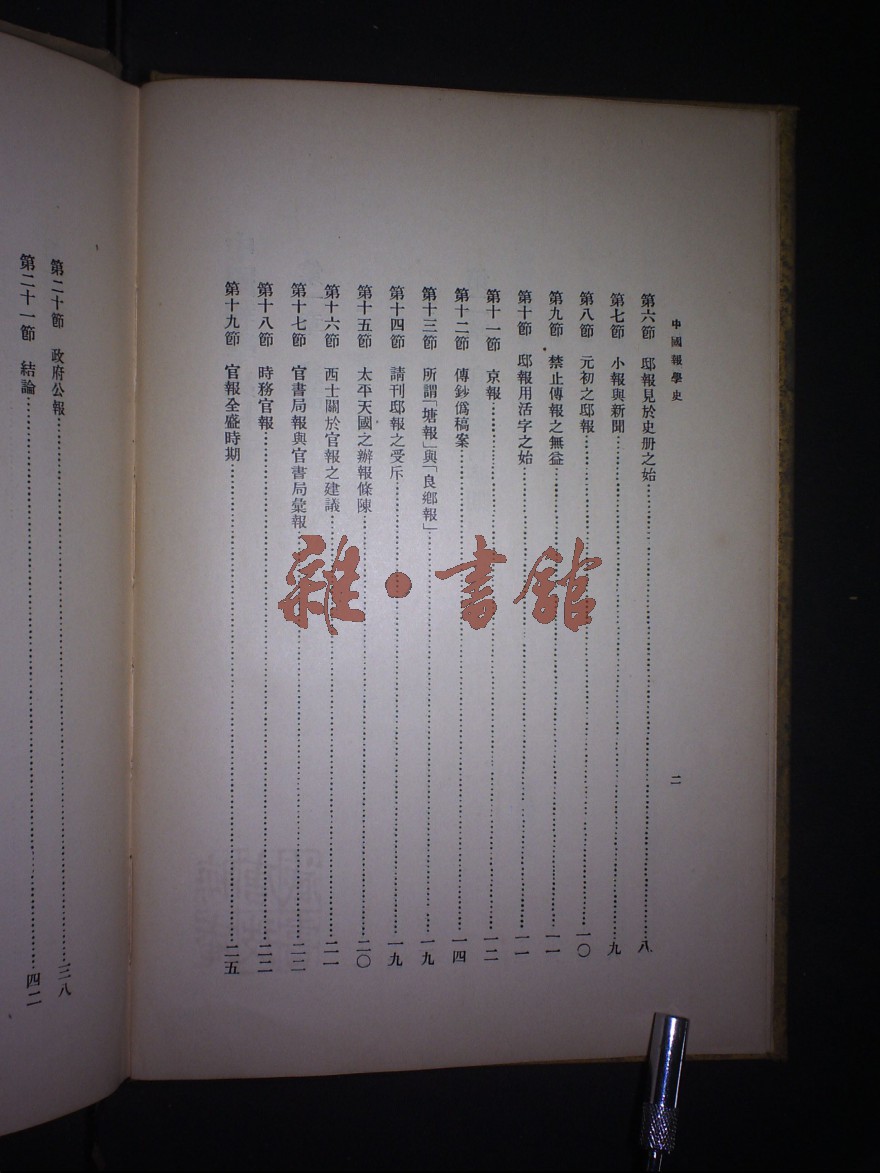 中國報學史
二
第六節 邸報見於史册之始……八
第七節 小報與新聞……九
第八節 元初之邸報……一〇
第九節 禁止傳報之無益……一一
第十節 邸報用活字之始……一一
第十一節 京報……一二
第十二節 傳鈔僞稿案……一四
第十三節 所謂「塘報」與「良鄉報」……一九
第十四節 請刊邸報之受斥……一九
第十五節 太平天國之辦報條陳……二〇
第十六節 西士關於官報之建議……二一
第十七節 官書局報與官書局彙報……二二
第十八節 時務官報……二二
第十九節 官報全盛時期……二五
第二十節 政府公報……三八
第二十一節 結論……四二
雜·書館